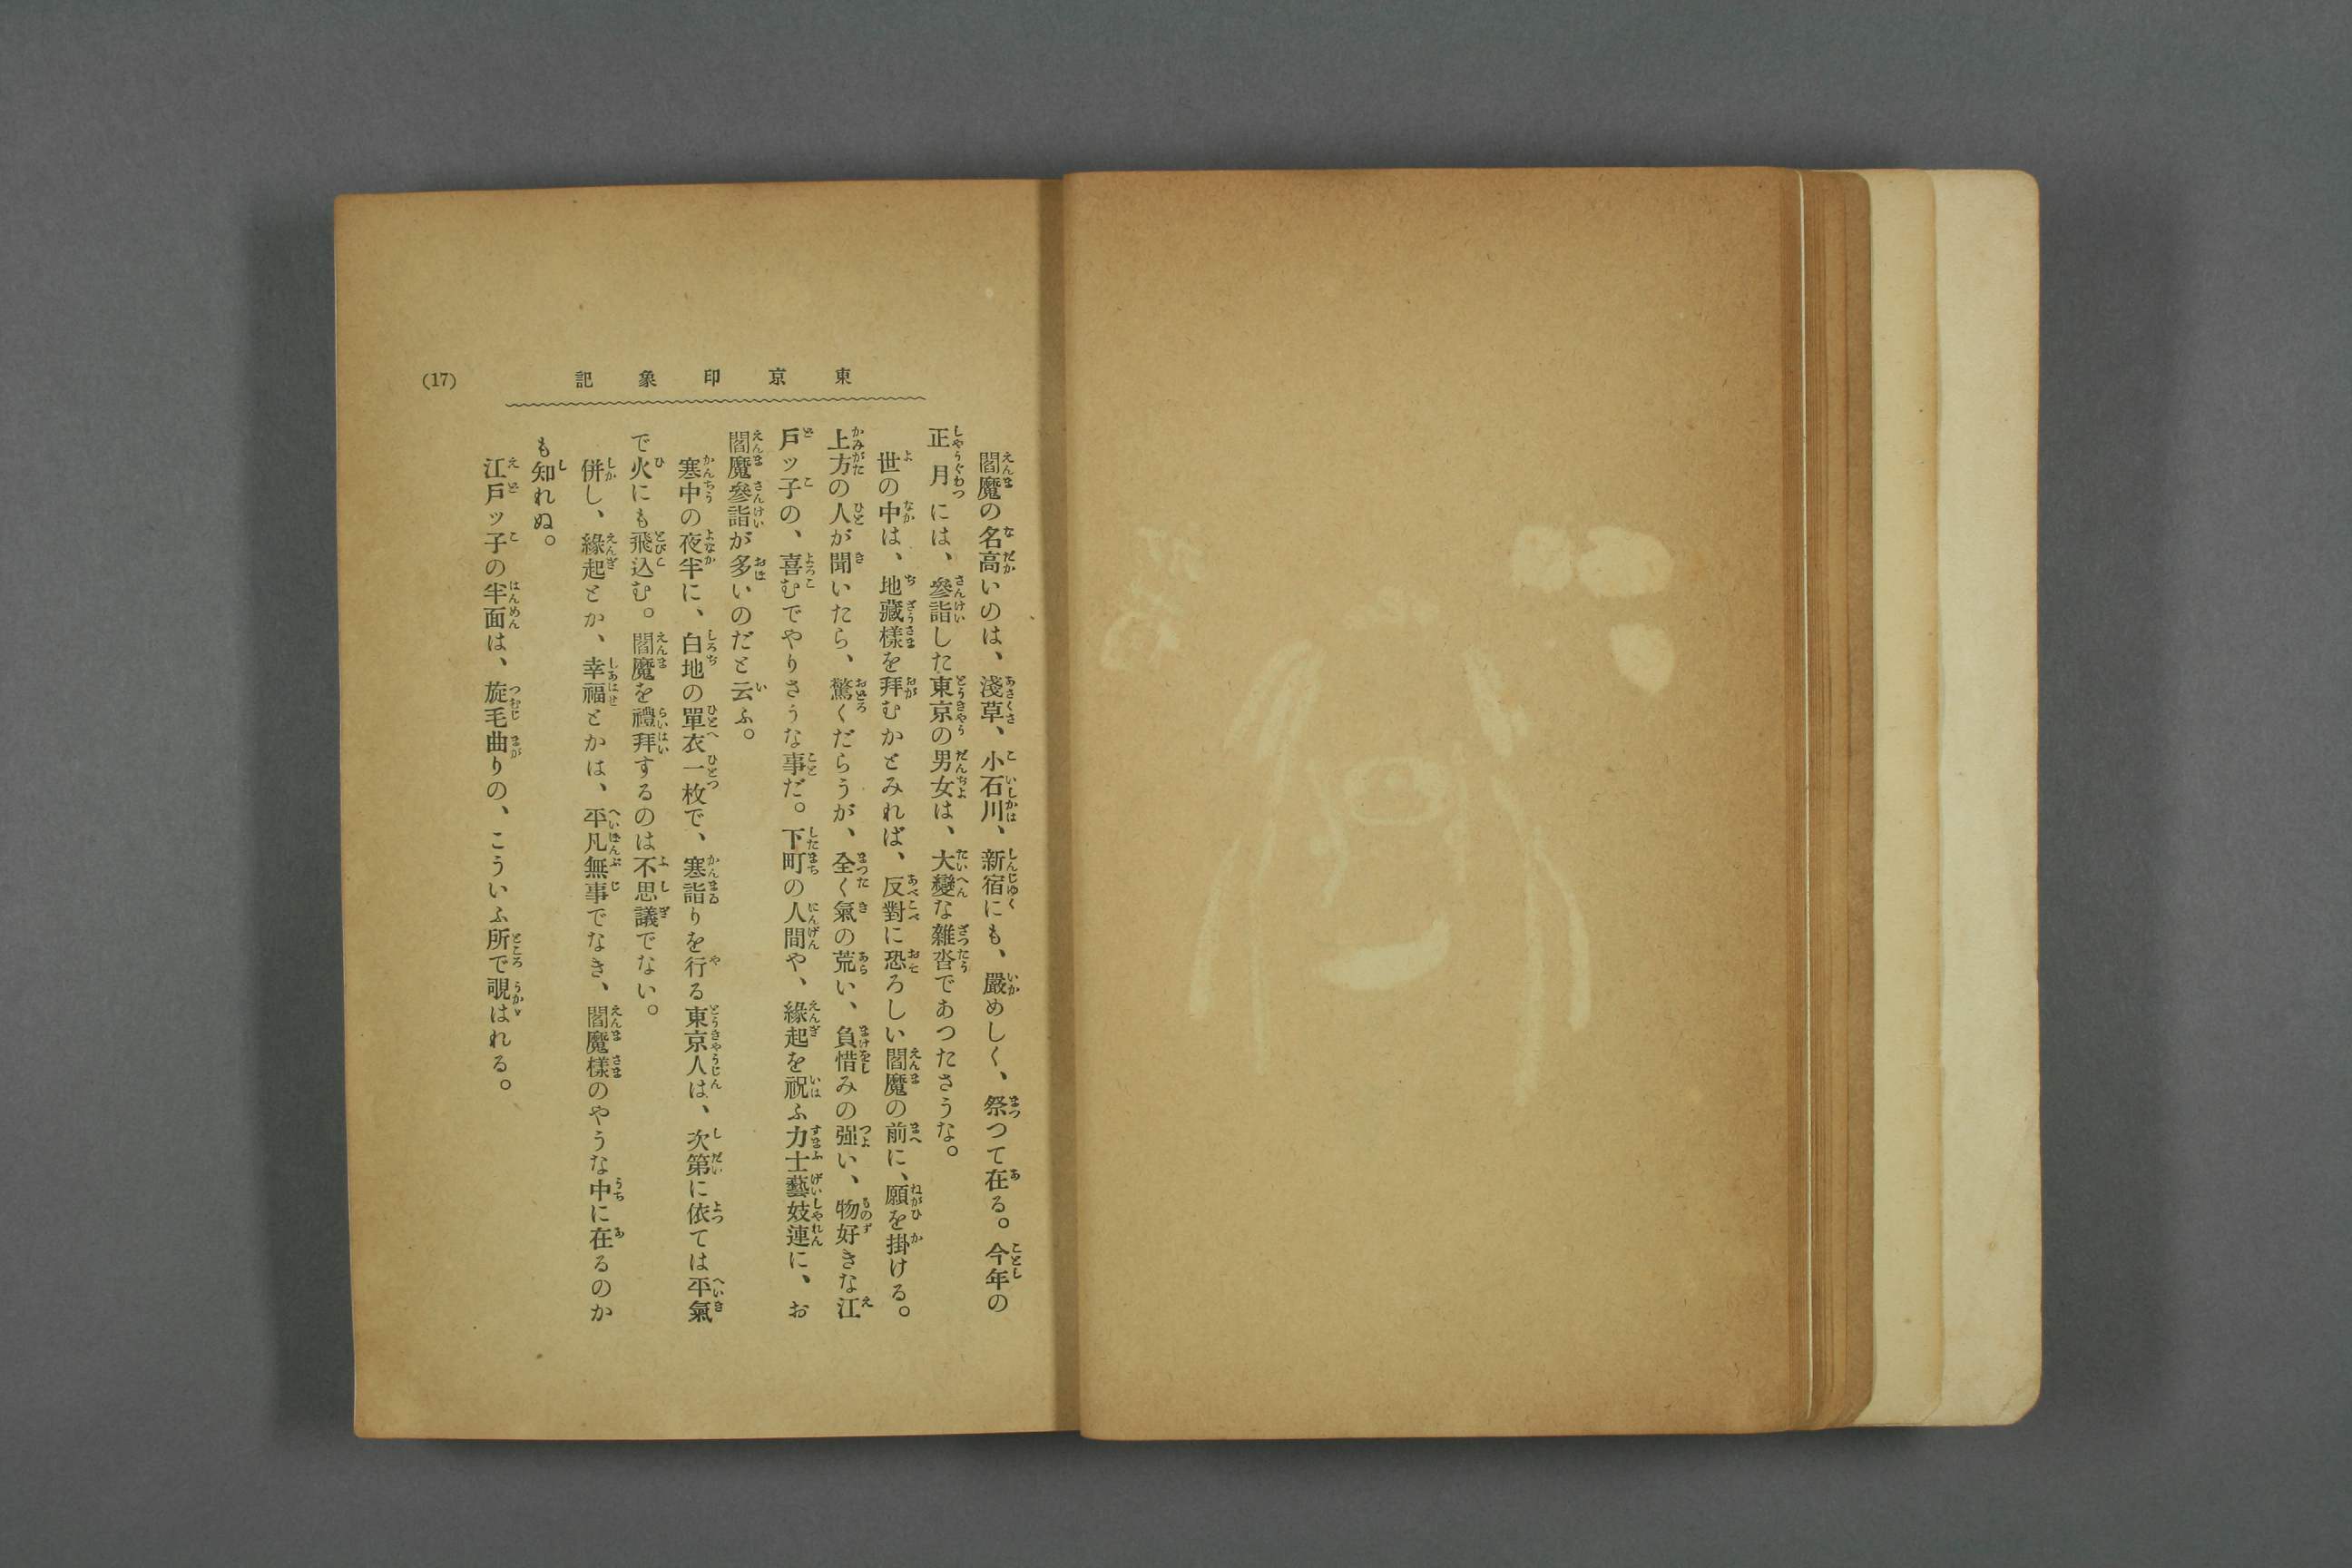 東京印象記
(17)
閻魔の名高いのは、淺草、小石川、新宿にも、嚴めしく、祭つて在る。今年の
正月には、參詣した東京の男女は、大變な雜沓であつたさうな。
世の中は、地藏樣を拜むかとみれば、反對に恐ろしい閻魔の前に、願を掛ける。
上方の人が聞いたら、驚くだらうが、全く氣の荒い、負惜みの强い、物好きな江
戸ッ子の、喜むでやりさうな事だ。下町の人間や、緣起を祝ふ力士藝妓連に、お
閻魔參詣が多いのだと云ふ。
寒中の夜半に、白地の單衣一枚で、寒詣りを行る東京人は、次第に依ては平氣
で火にも飛込む。閻魔を禮拜するのは不思議でない。
併し、緣起とか、幸福とかは、平凡無事でなき、閻魔樣のやうな中に在るのか
も知れぬ。
江戸ッ子の半面は、旋毛曲りの、こういふ所で覗はれる。